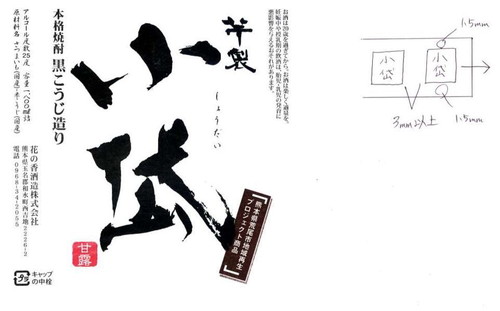 お酒は20歳を過ぎてから。お酒は楽しく適量を。
妊娠中や授乳期の飲酒は、胎児・乳児の発育に
悪影響を与えるおそれがあります。
芋製
小岱
しょうだい
熊本県荒尾市地域再生
プロジェクト商品
甘露
本格焼酎 黒こうじ造り
アルコール度数25度 容量一八〇〇ml詰
原材料名 さつまいも(国産)・米こうじ(国産)
花の香酒造株式会社
熊本県玉名郡和水町西吉地2226-2
電話 0968-34-2055
キャップ
の中栓
1.5mm
小岱
小岱
3mm以上
1.5mm